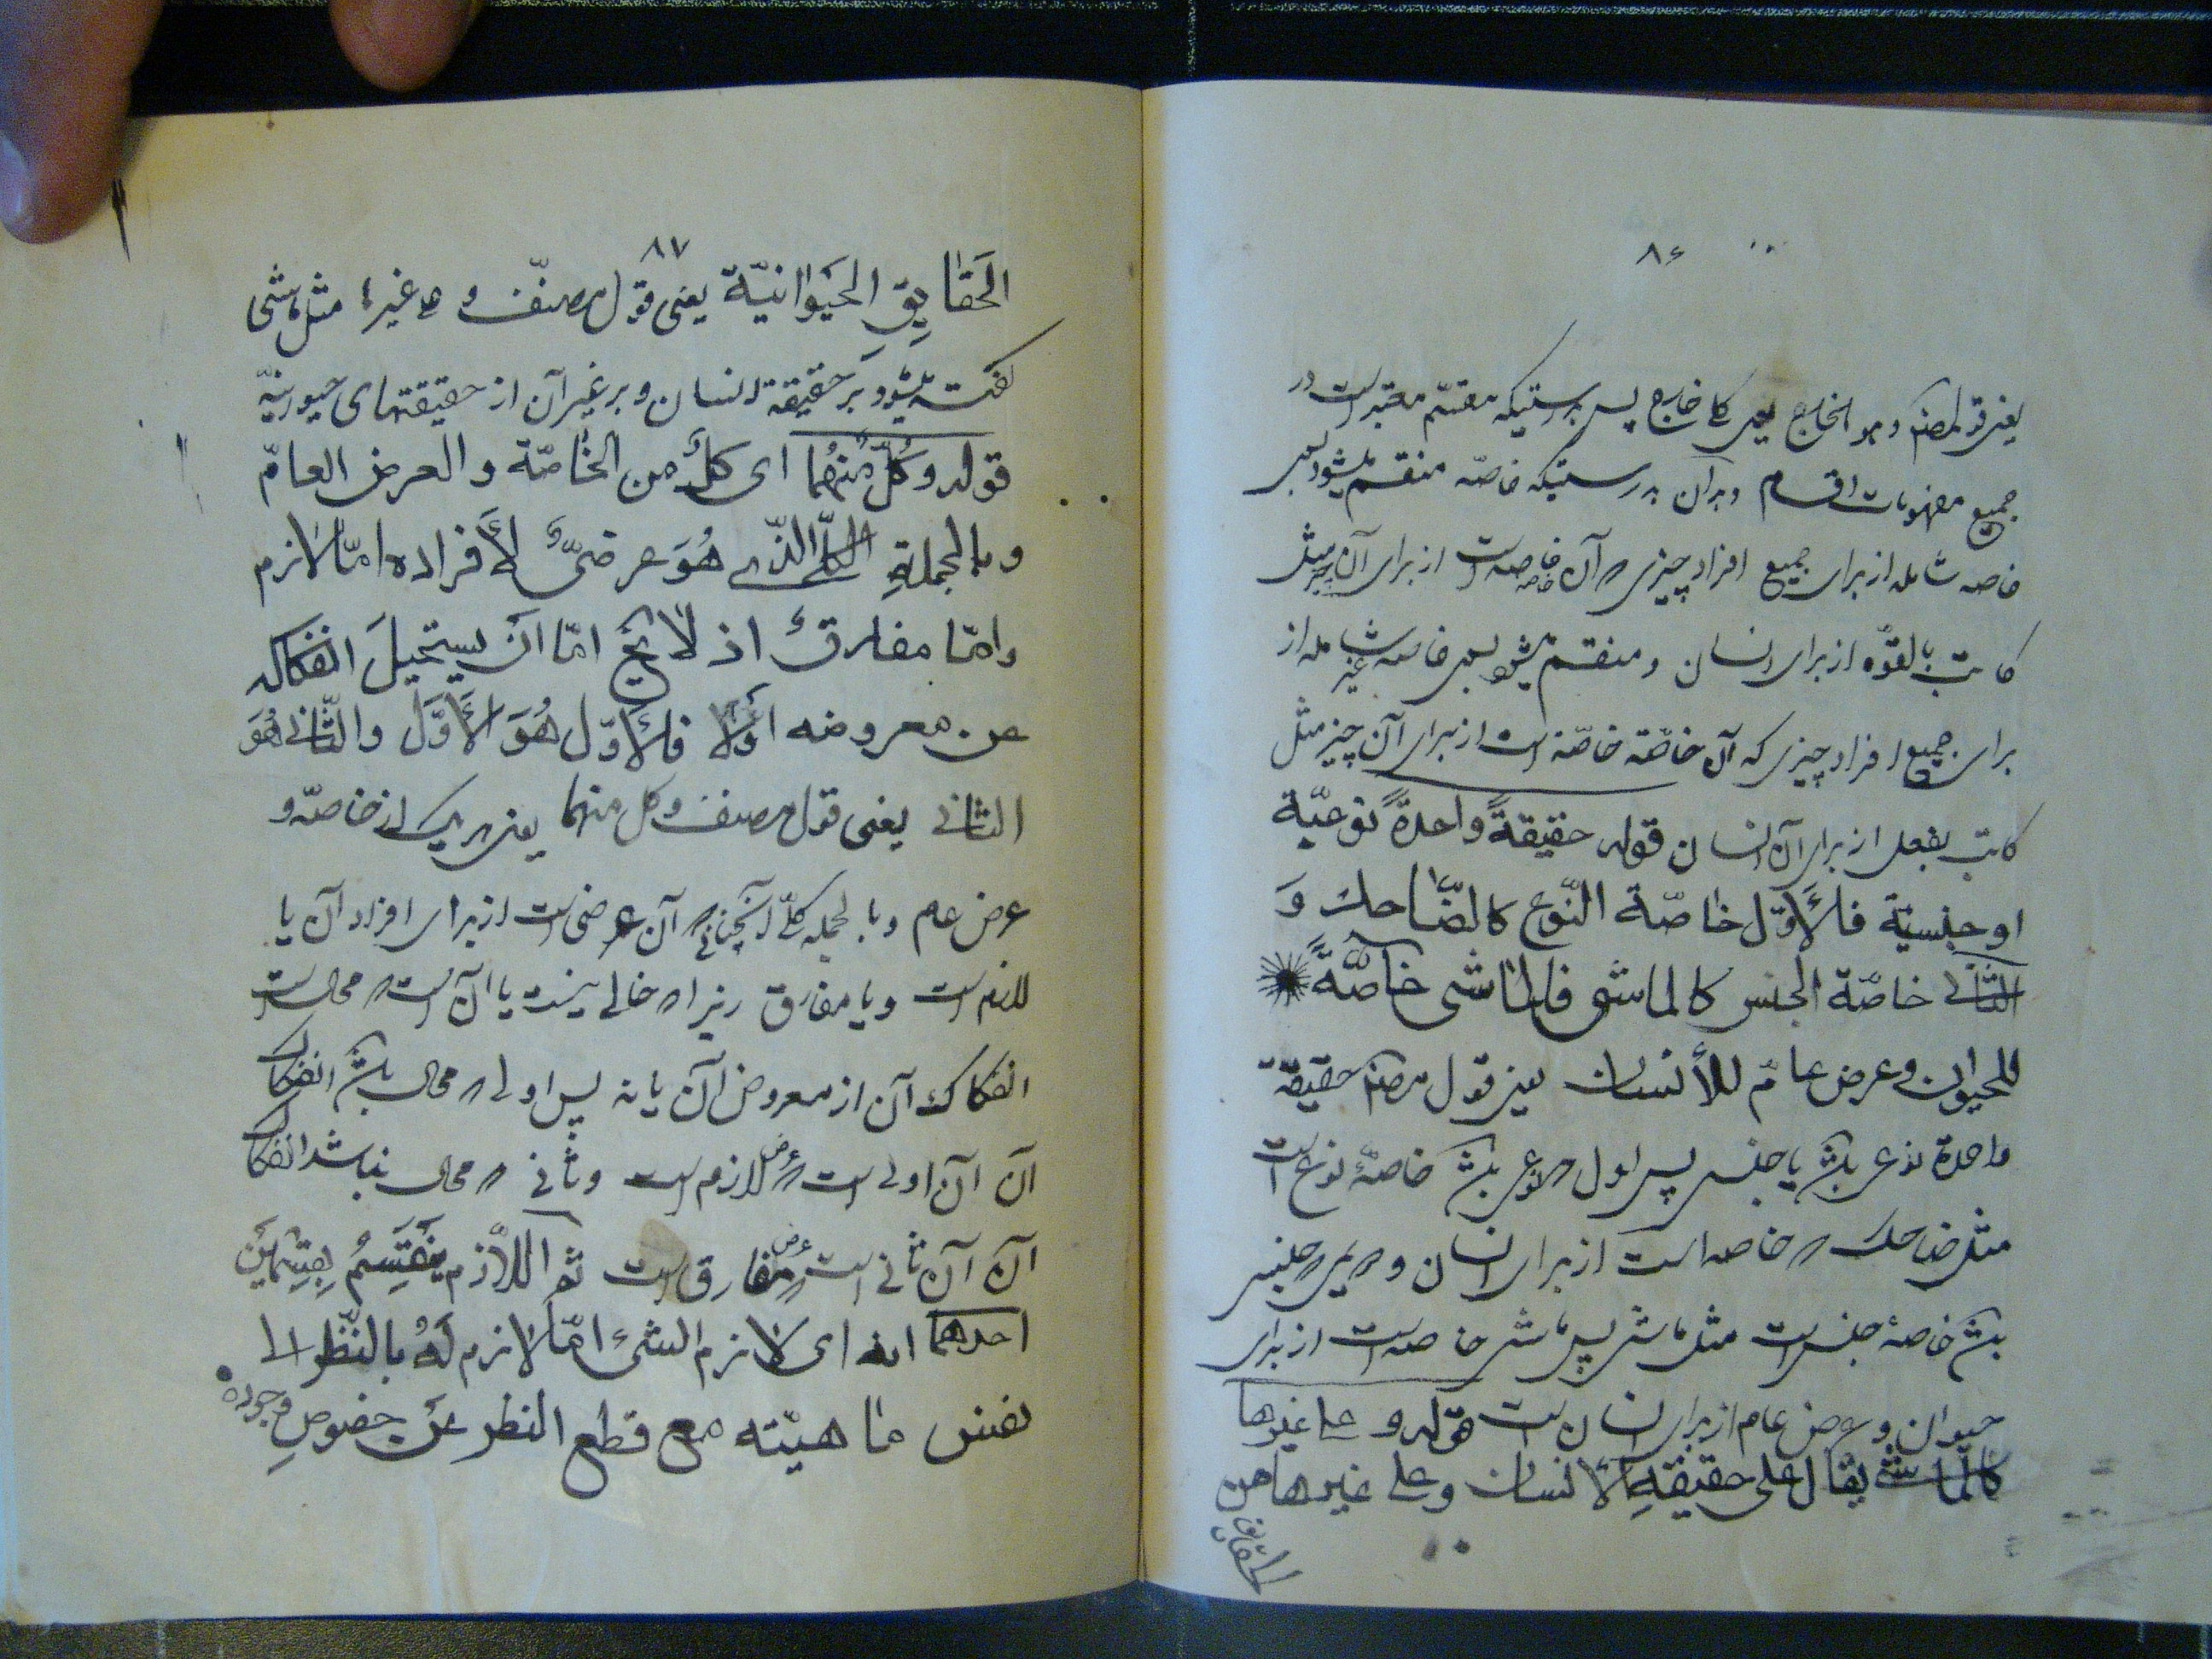 ۸۶
یعنی قول مصنف و هو الخارج یعنی کلی خارج پس بدرستیکه مقسم معتبر است در
جمیع مفهومات اقسام و بدان بدرستیکه خاصّه منقسم میشود بسوی
خاصه شامله از برای جمیع افراد چیزی که آن خاصه خاصه است از برای آن چیز مثل
کاتب بالقوّه از برای انسان و منقسم میشود بسوی خاصه غیر شامله از
برای جمیع افراد چیزی که آن خاصّه خاصّه است از برای آن چیز مثل
کاتب بفعل از برای آن انسان قوله حقیقةً واحدةً نوعیّة
او جنسیّة فالأوّل خاصّة النّوع کالضّاحک وَ
الثّانی خاصّة الجنس کالماشی فالماشی خاصّةً
للحیوان و عرض عامّ للأنسان یعنی قول مصنف حقیقة
واحدة نوعی باشد یا جنسی پس اول که نوعی باشد خاصّهٔ نوع است
مثل ضاحک که خاصه است از برای انسان و دویمی که جنسی
باشد خاصهٔ جنس است مثل ماشی پس ماشی خاصه است از برای
حیوان و عرض عام از برای انسان است قوله و علی غیرها
کالماشی یقال علی حقیقةِ الأنسان و علی غیرها من
الحقایق
۸۷
الحَقایِقِ الحَیَوانیّة یعنی قول مصنّف و علی غیرها مثل ماشی
گفته میشود بر حقیقة انسان و بر غیر آن از حقیقتهای حیوانیّه
قوله و کلٌّ مِنهُما ای کلٌّ من الخاصّة و العرض العامّ
و بالجملةِ الکلّی الّذی هُوَ عرضیٌّ لأفراده امّا لازم
و امّا مفارقٌ اذ لا یخ امّا انَ یستحیلَ انفکاکه
عن معروضه أوَلا فالأوّل هُوَ الأوَّل والثّانی هُوَ
الثانی یعنی قول مصنف و کل منهما یعنی هر یک از خاصّه و
عرض عام و بالجمله کلّی آنچنانی که آن عرضی است از برای افراد آن یا
لازم است و یا مفارق زیرا که خالی نیست یا آن است که محال است
انفکاک آن از معروض آن یا نه پس اولی که محال باشد انفکاک
آن آن اولی است که عرض لازم است و ثانی که محال نباشد انفکاک
آن آن ثانی است که عرض مفارق است ثم اللّازم ینقَسِمُ بقِسمَینِ
احدهما انه ای لازم الشیء امّا لازم لَهُ بالنّظر الی
نفس ماهیّته مع قطع النظر عن خصوصِ وجوده